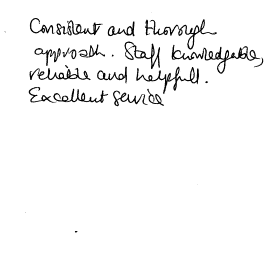 Consistent and thorough
approach. Staff knowledgable,
reliable and helpfull.
Excellent service